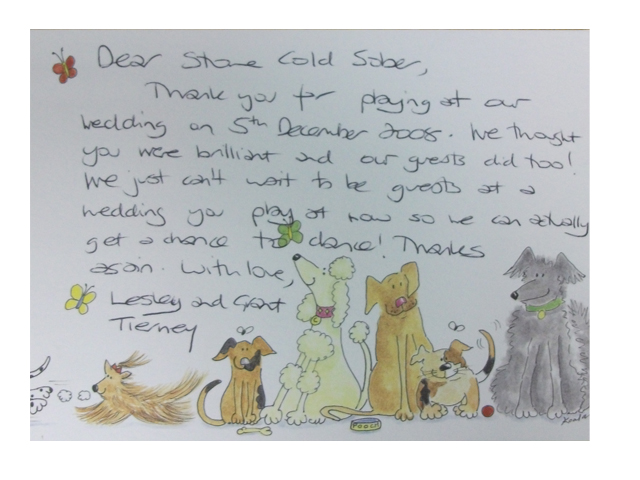 Dear Stone Cold Sober,
Thank you for playing at our
wedding on 5th December 2008. We thought
you were brilliant and our guests did too!
We just can't wait to be guests at a
wedding you play at now so we can actually
get a chance to dance! Thanks
again. With love,
Lesley and Grant
Tierney
POOCH